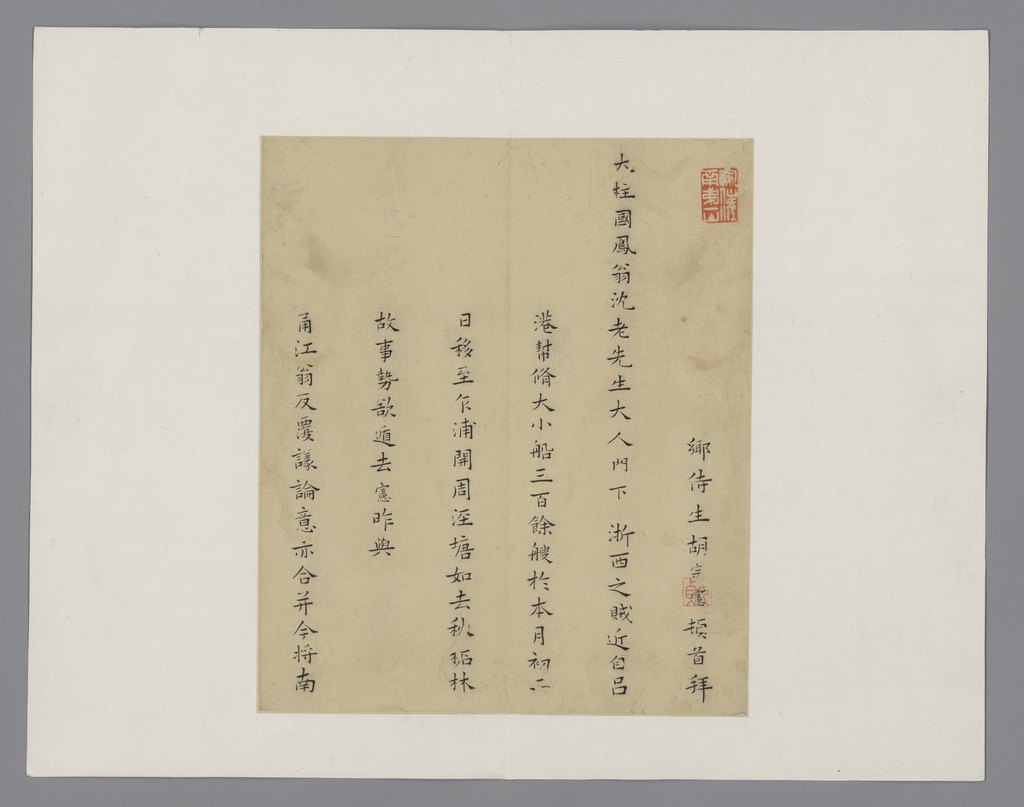 鄉侍生胡宗憲頓首拜
大柱國鳳翁沈老先生大人門下 浙西之賊近自呂
港幫脩大小船三百餘艘於本月初二
日移至乍浦開周涇塘如去秋柘林
故事勢欲遁去憲昨與
甬江翁反覆議論意亦合并今将南